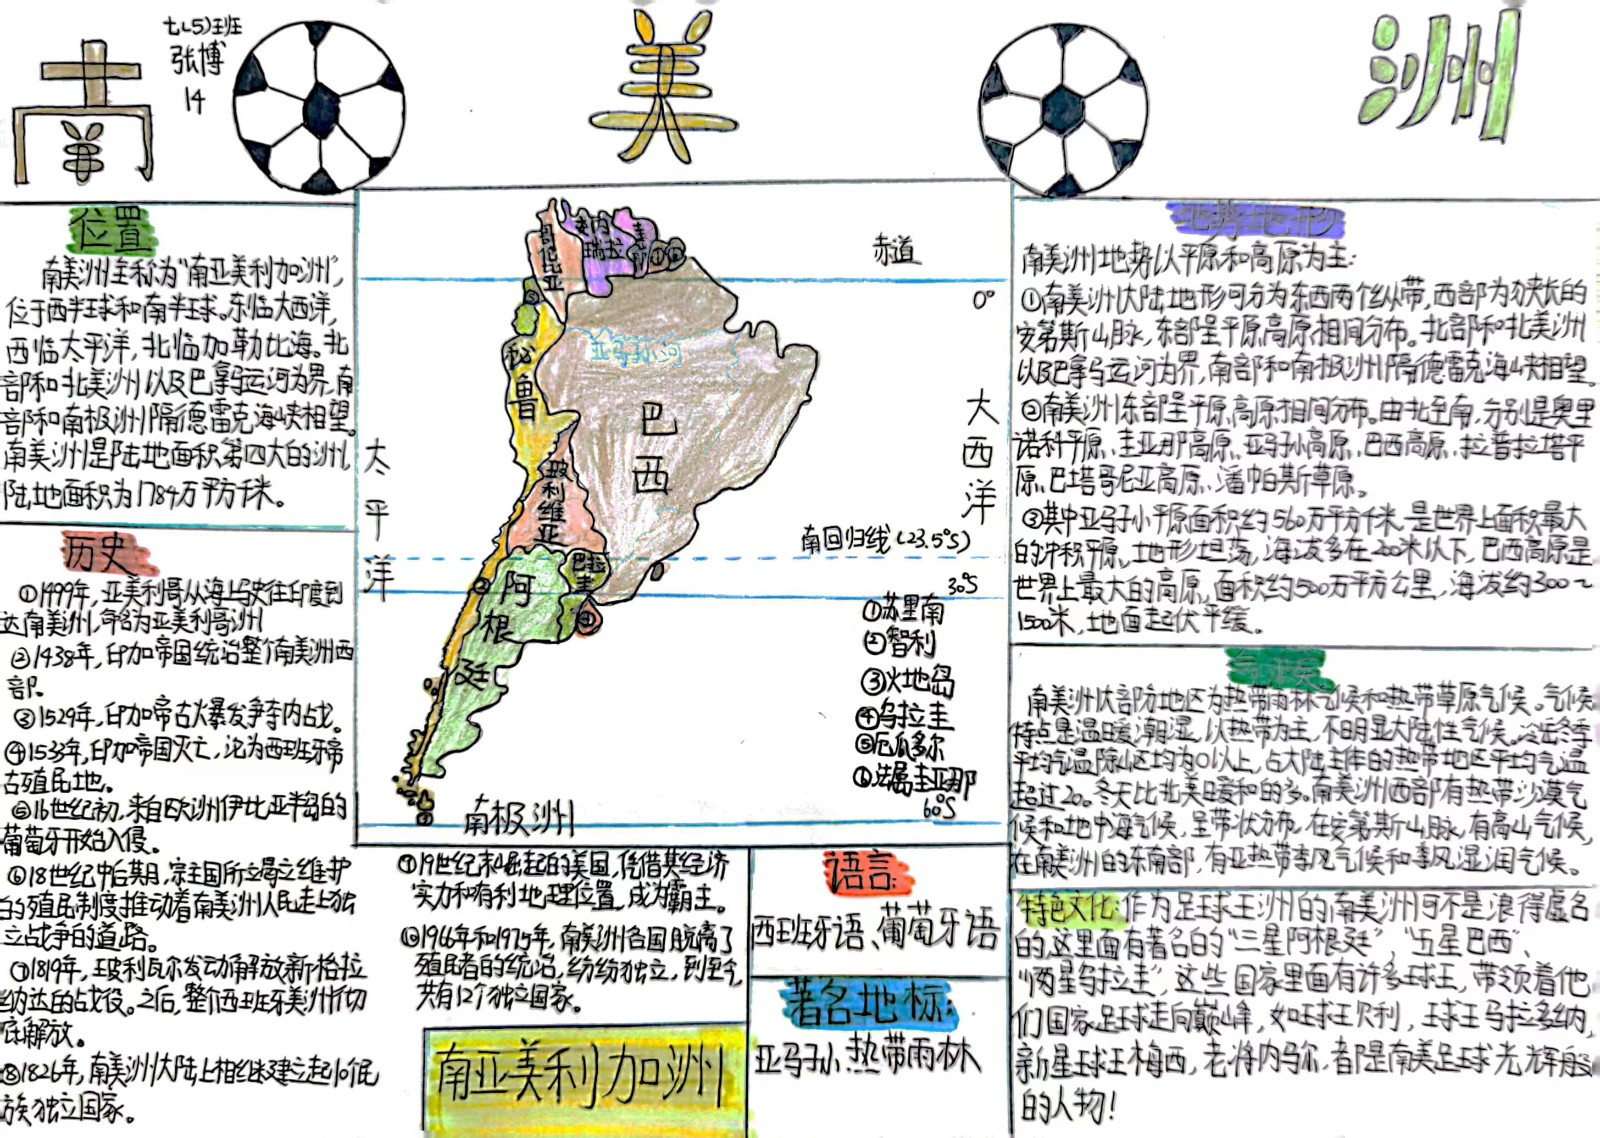 南
七(5)班
张博
14
美
洲
位置
南美洲全称为“南亚美利加洲”,
位于西半球和南半球。东临大西洋,
西临太平洋,北临加勒比海。北
部和北美洲以及巴拿马运河为界,南
部和南极洲隔德雷克海峡相望。
南美洲是陆地面积第四大的洲,
陆地面积为1784万平方千米。
历史
①1499年,亚美利哥从海上驶往印度到
达南美洲,命名为亚美利哥洲
②1438年,印加帝国统治整个南美洲西
部.
③1529年,印加帝古火暴发争夺内战。
④1533年,印加帝国灭亡,沦为西班牙帝
古殖民地。
⑤16世纪初,来自欧洲伊比亚半岛的
葡萄牙开始入侵。
⑥18世纪中后期,宗主国所立维护
的殖民制度推动着南美洲人民走上独
立战争的道路。
⑦1819年,玻利瓦尔发动解放新格拉
纳达的战役。之后,整个西班牙美洲
底解放。
⑧1826年,南美洲大陆上相继建立起10个民
族独立国家。
哥伦比亚
委内
瑞拉
圭亚那
① ⑥
赤道
0°
⑤
亚马孙河
秘
鲁
巴
西
大
西
洋
太
平
洋
玻
利
维
亚
南回归线(23.5°S)
巴拉圭
30°S
②
阿
根
廷
④
①苏里南
②智利
③火地岛
④乌拉圭
⑤厄瓜多尔
⑥法属圭亚那
60°S
③
南极洲
⑨19世纪末崛起的美国,凭借其经济
实力和有利地理位置,成为霸主。
⑩1966年和1975年,南美洲各国脱离了
殖民者的统治,纷纷独立,到至今,
共有12个独立国家。
南亚美利加洲
语言:
西班牙语、葡萄牙语
著名地标:
亚马孙热带雨林
地势地形
南美洲地势以平原和高原为主:
①南美洲大陆地形可分为东西两个纵带,西部为狭长的
安第斯山脉,东部呈平原高原相间分布。北部和北美洲
以及巴拿马运河为界,南部和南极洲隔德雷克海峡相望。
②南美洲东部呈平原高原相间分布。由北至南,分别是奥里
诺科平原、圭亚那高原、亚马孙高原、巴西高原、拉普拉塔平
原、巴塔哥尼亚高原、潘帕斯草原。
③其中亚马孙平原面积约560万平方千米,是世界上面积最大
的冲积平原,地形坦荡,海拔多在200米以下,巴西高原是
世界上最大的高原,面积约500万平方公里,海拔约300~
1500米,地面起伏平缓。
气候
南美洲大部分地区为热带雨林气候和热带草原气候。气候
特点是温暖潮湿,以热带为主,不明显大陆性气候。冷岳冬季
平均气温除山区均为0以上,占大陆主体的热带地区平均气温
超过20。冬天比北美暖和的多。南美洲西部有热带沙漠气
候和地中海气候,呈带状分布,在安第斯山脉,有高山气候,
在南美洲的东南部,有亚热带季风气候和季风湿润气候。
特色文化:作为足球王洲的南美洲可不是浪得虚名
的,这里面有著名的“三星阿根廷”,“五星巴西”、
“两星乌拉圭”,这些国家里面有许多球王,带领着他
们国家足球走向巅峰,如球王贝利,球王马拉多纳,
新星球王梅西,老将内马尔,都是南美足球光辉般
的人物!